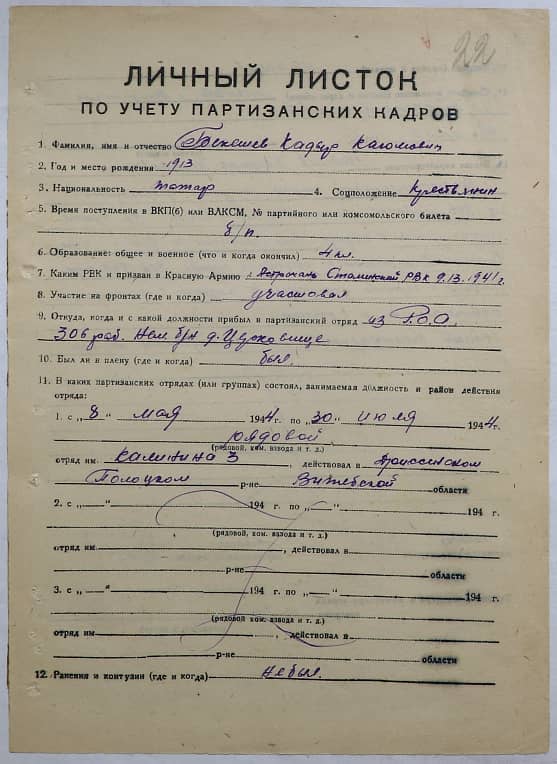 22
ЛИЧНЫЙ ЛИСТОК
ПО УЧЕТУ ПАРТИЗАНСКИХ КАДРОВ
1. Фамилия, имя и отчество Бекешев Кадыр
2. Год и место рождения 1913
3. Национальность татар 4. Соцположение крестьянин
5. Время поступления в ВКП(б) или ВЛКСМ, № партийного или комсомольского билета
б/п.
6. Образование: общее и военное (что и когда окончил) 4 кл.
7. Каким РВК и призван в Красную Армию Астрахань Сталинский РВК 1941 г.
8. Участие на фронтах (где и когда) участовал
9. Откуда, когда и с какой должности прибыл в партизанский отряд из Р.О.А.
306 раб. Нем. б/н д.
10. Был ли в плену (где и когда) был.
11. В каких партизанских отрядах (или группах) состоял, занимаемая должность и район действия
отряда:
1. с „8“ мая 1944 г. по „30“ июля 1944 г.
рядовой
(рядовой, ком. взвода и т. д.)
отряд им. Калинина 3, действовал в Дриссинском
Полоцком р-не Витебской области
2. с „—“ 194 г. по „—“ 194 г.
(рядовой, ком. взвода и т. д.)
отряд им. , действовал в
р-не области
3. с „—“ 194 г. по „—“ 194 г.
(рядовой, ком. взвода и т. д.)
отряд им. , действовал в
р-не области
12. Ранения и контузии (где и когда) небыл.